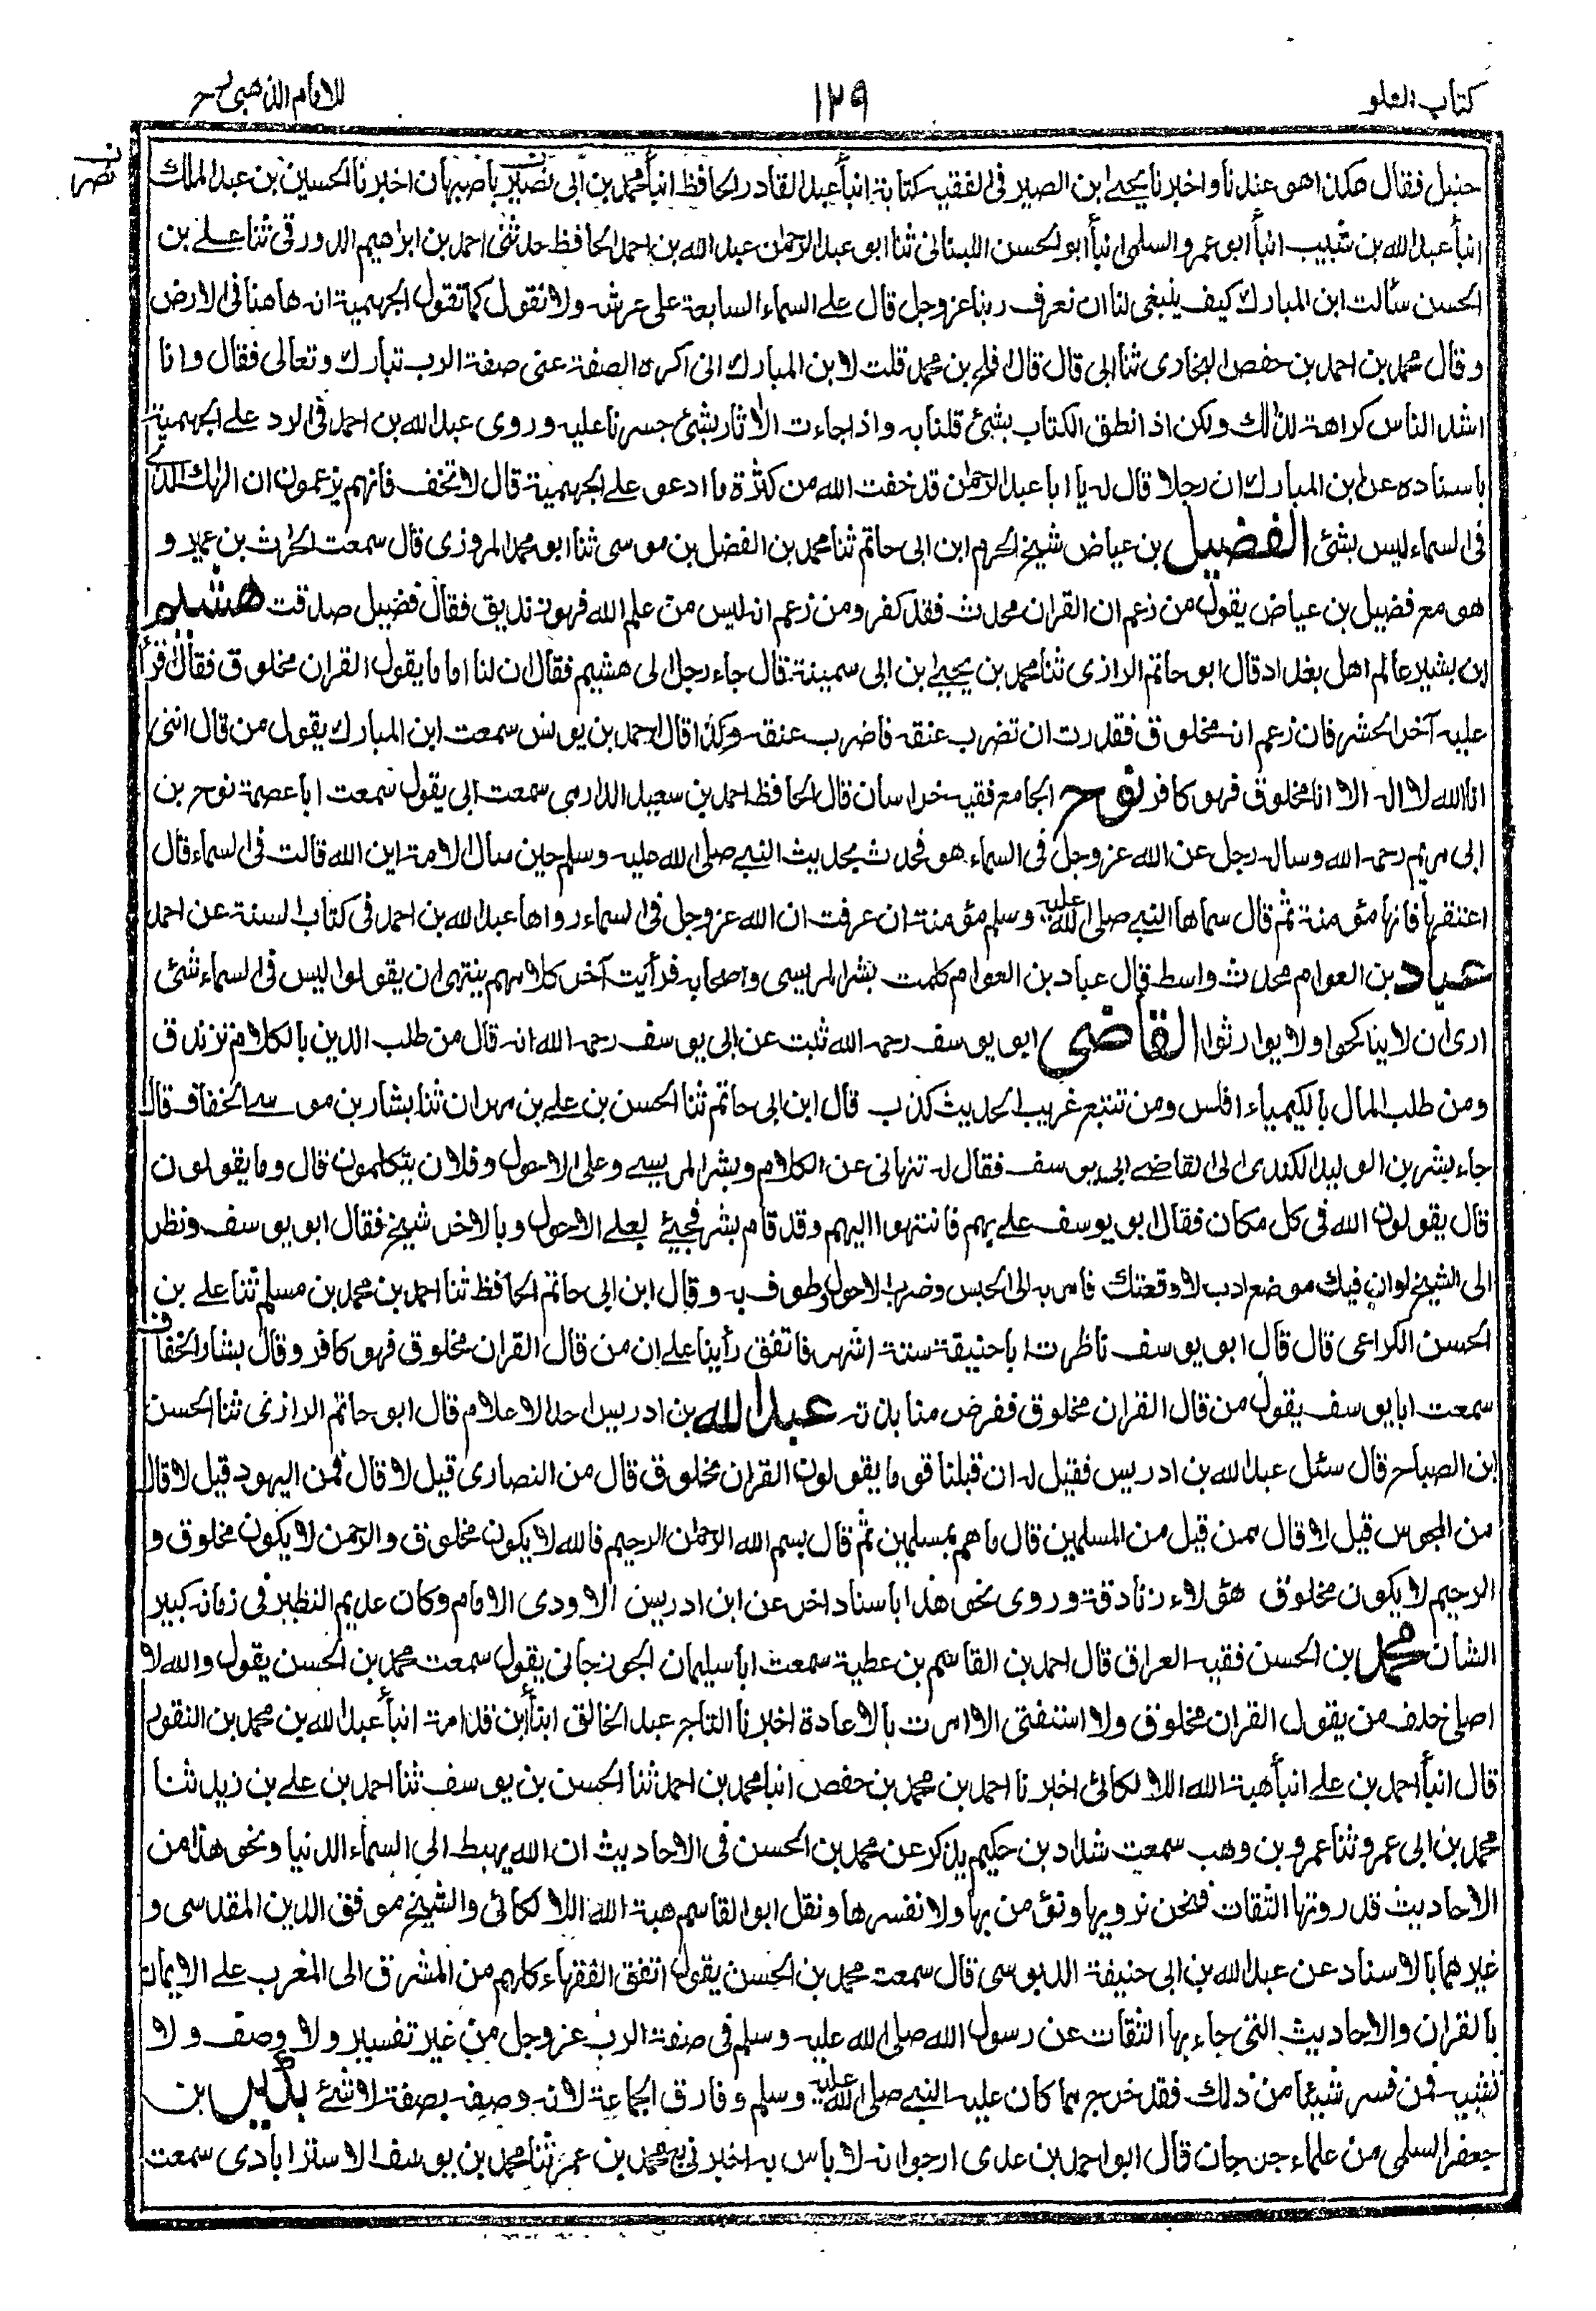 كتاب العلو
١٢٩
للامام الذهبى رح
نصر ن
حنبل فقال هكذا هو عندنا واخبرنا يحيے ابن الصيرفى الفقيه كتابة انبأ عبد القادر الحافظ انبأ محمد بن ابى نصير باصبهان اخبرنا الحسين بن عبد الملك
انبأ عبد الله بن شبيب انبأ ابو عمرو السلمى انبأ ابو الحسن اللبنانى ثنا ابو عبد الرحمٰن عبد الله بن احمد الحافظ حدثنى احمد بن ابراهيم الدورقى ثنا علے بن
الحسن سألت ابن المبارك كيف ينبغى لنا ان نعرف ربنا عز وجل قال علے السماء السابعة على عرشه ولا نقول كما تقول الجهمية انه هاهنا فى الارض
وقال محمد بن احمد بن حفص البخارى ثنا ابى قال قال افلح بن محمد قلت لابن المبارك انى اكره الصفة عنى صفة الرب تبارك وتعالى فقال وانا
اشد الناس كراهة لذلك ولكن اذا نطق الكتاب بشئ قلنا به واذا جاءت الاٰثار بشئ جسرنا عليه وروى عبد الله بن احمد فى الرد علے الجهمية
باسناده عن ابن المبارك ان رجلا قال له يا ابا عبد الرحمٰن قد خفت الله من كثرة ما ادعو علے الجهمية قال لا تخف فانهم يزعمون ان الٰهك الذى
فى السماء ليس بشئ الفضيل بن عياض شيخ الحرم ابن ابى حاتم ثنا محمد بن الفضل بن موسى ثنا ابو محمد المروزى قال سمعت الحراث بن عمير و
هو مع فضيل بن عياض يقول من زعم ان القران محدث فقد كفر ومن زعم انه ليس من علم الله فهو زنديق فقال فضيل صدقت هشيم
ابن بشير عالم اهل بغداد قال ابو حاتم الرازى ثنا محمد بن يحيے بن ابى سمينة قال جاء رجل الى هشيم فقال ان لنا اماما يقول القران مخلوق فقال اقرأ
عليه آخر الحشر فان زعم انه مخلوق فقدرت ان تضرب عنقه فاضرب عنقه وكذا قال احمد بن يونس سمعت ابن المبارك يقول من قال اننى
انا الله لا اله الا انا مخلوق فهو كافر نوح الجامع فقيه خراسان قال الحافظ احمد بن سعيد الدارمى سمعت ابى يقول سمعت ابا عصمة نوح بن
ابى مريم رحمه الله وساله رجل عن الله عز وجل فى السماء هو فحدث بحديث النبے صلى الله عليه وسلم حين سال الامة اين الله قالت فى السماء قال
اعتقها فانها مؤمنة ثم قال سماها النبے صلى الله عليه وسلم مؤمنة ان عرفت ان الله عز وجل فى السماء رواها عبد الله بن احمد فى كتاب السنة عن احمد
عباد بن العوام محدث واسط قال عباد بن العوام كلمت بشر المريسى واصحابه فرأيت آخر كلامهم ينتهى ان يقولوا ليس فى السماء شئ
ارى ان لا يناكحوا ولا يوارثوا القاضى ابو يوسف رحمه الله ثبت عن ابى يوسف رحمه الله انه قال من طلب الدين بالكلام تزندق
ومن طلب المال بالكيمياء افلس ومن تتبع غريب الحديث كذب قال ابن ابى حاتم ثنا الحسن بن علے بن مهران ثنا بشار بن موسے الخفاف قال
جاء بشر بن الوليد الكندى الى القاضے ابى يوسف فقال له تنهانى عن الكلام وبشر المريسے وعلى الاحول وفلان يتكلمون قال وما يقولون
قال يقولون الله فى كل مكان فقال ابو يوسف علے بهم فانتهوا اليهم وقد قام بشر فجيئ بعلے الاحول وبالاخر شيخ فقال ابو يوسف ونظر
الى الشيخ لو ان فيك موضع ادب لاوقعتك فامر به الى الحبس وضرب الاحول وطوف به وقال ابن ابى حاتم الحافظ ثنا احمد بن محمد بن مسلم ثنا علے بن
الحسن الكراعى قال قال ابو يوسف ناظرت ابا حنيفة ستة اشهر فاتفق رأينا علے ان من قال القران مخلوق فهو كافر وقال بشار الخفاف
سمعت ابا يوسف يقول من قال القران مخلوق ففرض منابذته عبد الله بن ادريس احد الاعلام قال ابو حاتم الرازى ثنا الحسن
ابن الصباح قال سئل عبد الله بن ادريس فقيل له ان قبلنا قوما يقولون القران مخلوق قال من النصارى قيل لا قال فمن اليهود قيل لا قال
من المجوس قيل لا قال ممن قيل من المسلمين قال ما هم بمسلمين ثم قال بسم الله الرحمٰن الرحيم فالله لا يكون مخلوق والرحمن لا يكون مخلوق و
الرحيم لا يكون مخلوق هؤلاء زنادقة وروى نحو هذا باسناد اخر عن ابن ادريس الاودى الامام وكان عديم النظير فى زمانه كبير
الشان محمد بن الحسن فقيه العراق قال احمد بن القاسم بن عطية سمعت ابا سليمان الجوزجانى يقول سمعت محمد بن الحسن يقول والله لا
اصلى خلف من يقول القران مخلوق ولا استفتى الا امرت بالاعادة اخبرنا التاجر عبد الخالق ابنأ ابن قدامة انبأ عبد الله بن محمد بن النقور
قال انبأ احمد بن علے انبأ هبة الله اللالكائى اخبرنا احمد بن محمد بن حفص انبا محمد بن احمد ثنا الحسن بن يوسف ثنا احمد بن علے بن زيد ثنا
محمد بن ابى عمرو ثنا عمرو بن وهب سمعت شداد بن حكيم يذكر عن محمد بن الحسن فى الاحاديث ان الله يهبط الى السماء الدنيا ونحو هذا من
الاحاديث قد روتها الثقات فنحن نرويها ونؤمن بها ولا نفسرها ونقل ابو القاسم هبة الله اللالكائى والشيخ موفق الدين المقدسى و
غيرهما بالاسناد عن عبد الله بن ابى حنيفة الدبوسى قال سمعت محمد بن الحسن يقول اتفق الفقهاء كلهم من المشرق الى المغرب علے الايمان
بالقران والاحاديث التى جاء بها الثقات عن رسول الله صلى الله عليه وسلم فى صفة الرب عز وجل من غير تفسير ولا وصف ولا
تشبيه فمن فسر شيئا من ذلك فقد خرج مما كان عليه النبے صلى الله عليه وسلم وفارق الجماعة لانه وصفه بصفة لا شئے بكير بن
جعفر السلمى من علماء جرجان قال ابو احمد بن عدى ارجو انه لا باس به اخبرنى محمد بن عمر ثنا محمد بن يوسف الاستراباذى سمعت